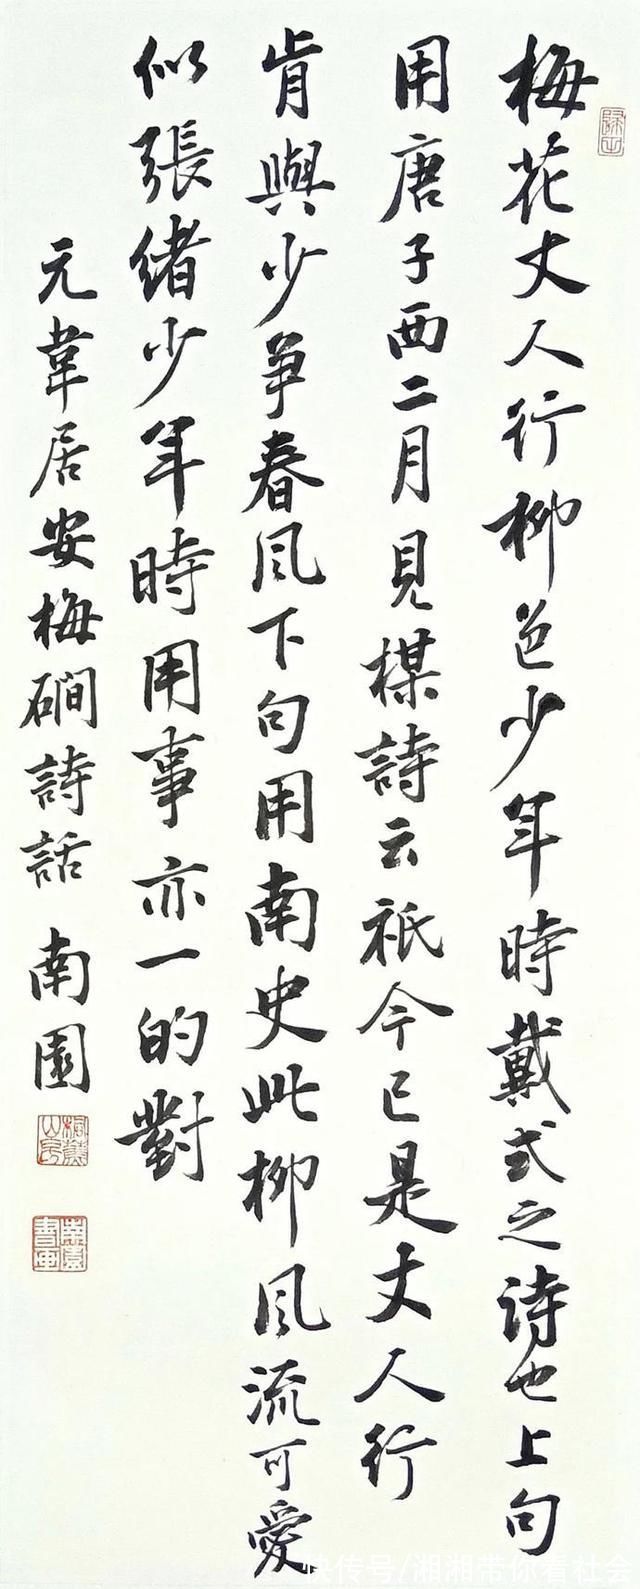 梅花丈人行柳色少年時戴式之诗也上句
用唐子西二月見楳詩云祇今已是丈人行
肯與少年争春風下句用南史此柳風流可愛
似張緒少年時用事亦一的對
元韋居安梅磵詩話 南園
南園書画
快传号/湘湘带你看社会